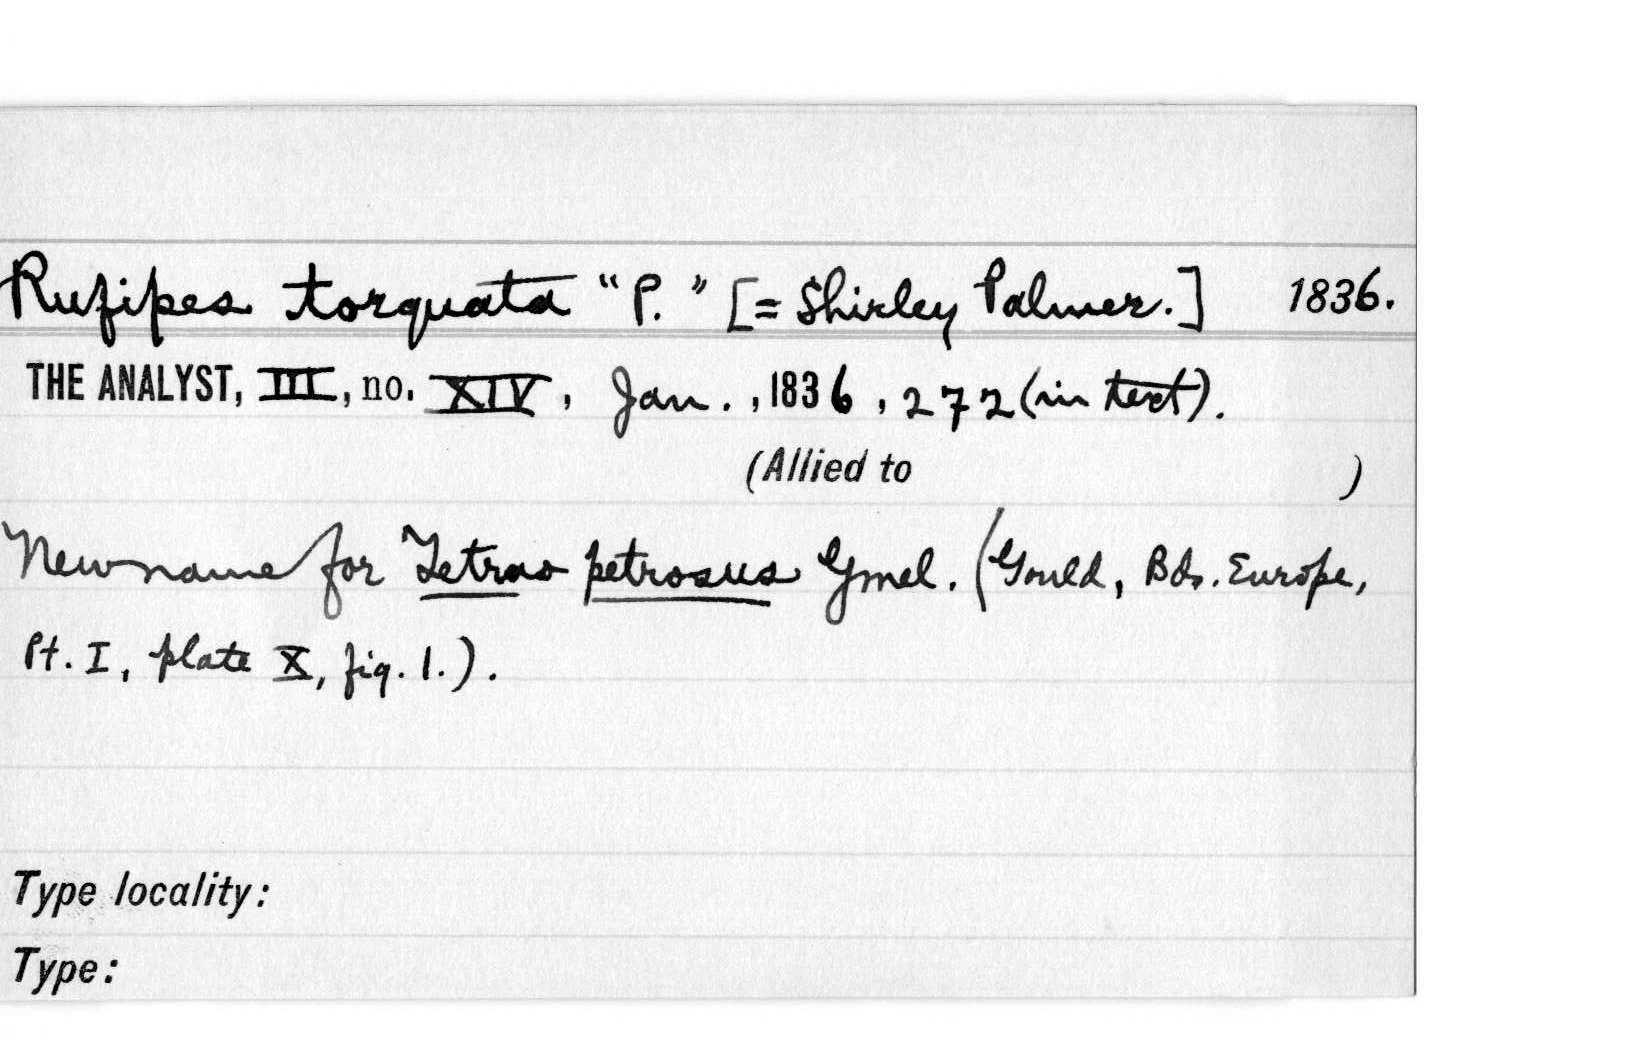 Rufipes torquata "P." [= Shirley Palmer.] 1836.
THE ANALYST, III, no. XIV, Jan., 1836, 272 (in text).
(Allied to )
New name for Tetrao petrosus Gmel. (Gould, Bds. Europe,
Pt. I, plate X, fig. 1.).
Type locality:
Type: